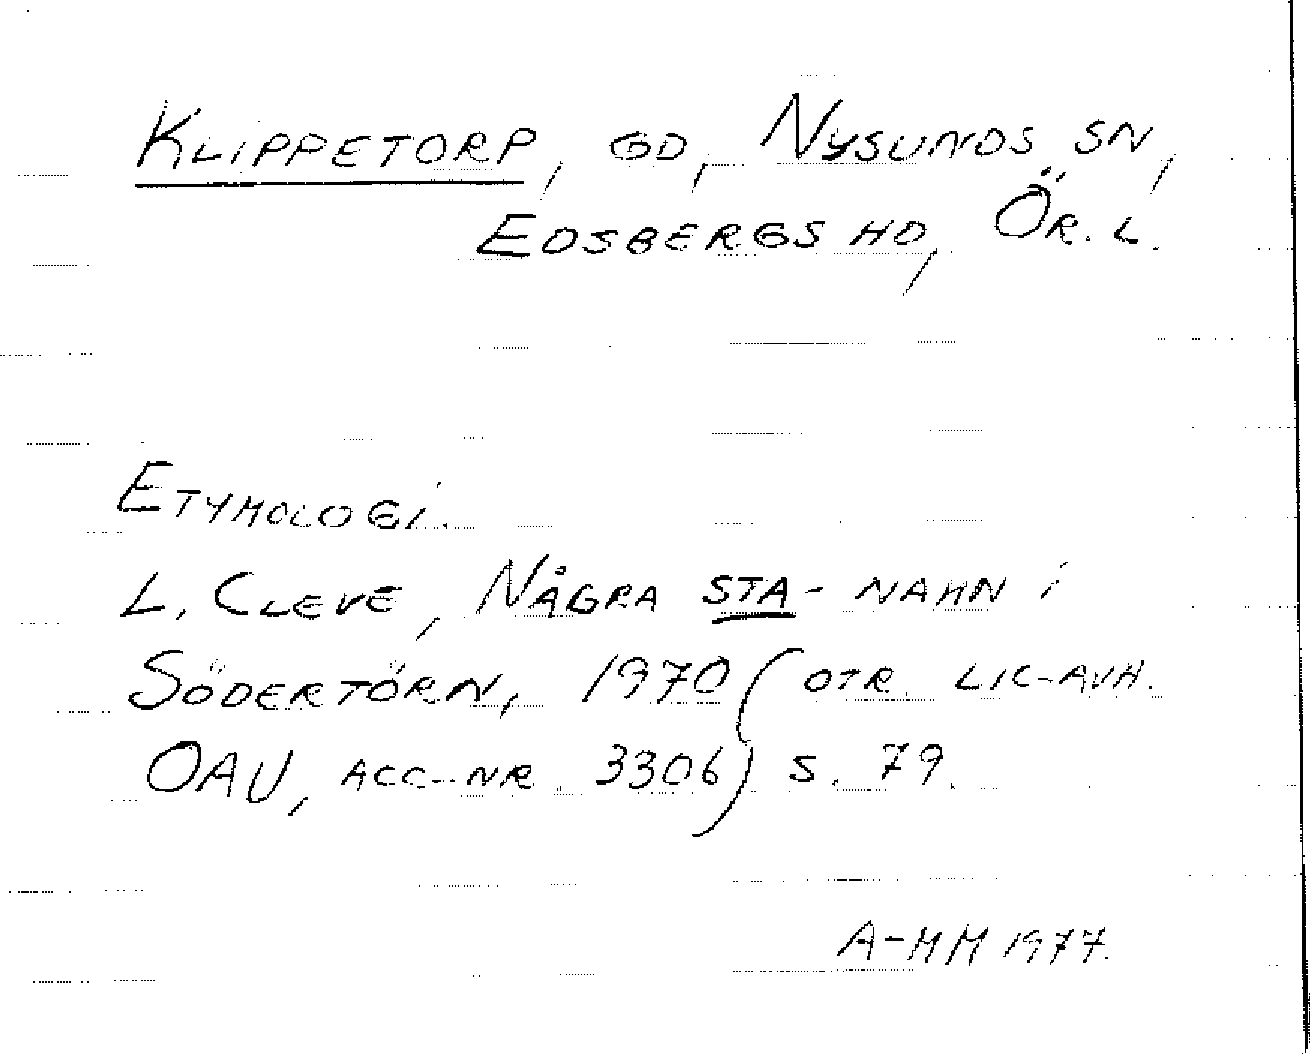 KLIPPETORP, GD, NYSUNDS SN,
EDSBERGS HD, ÖR. L.
ETYMOLOGI.
L. CLEVE, NÅGRA STA- NAMN i
SÖDERTÖRN, 1970 (OTR. LIC-AVH.
OAU, ACC-NR 3306) S. 79.
A-MM 1977.